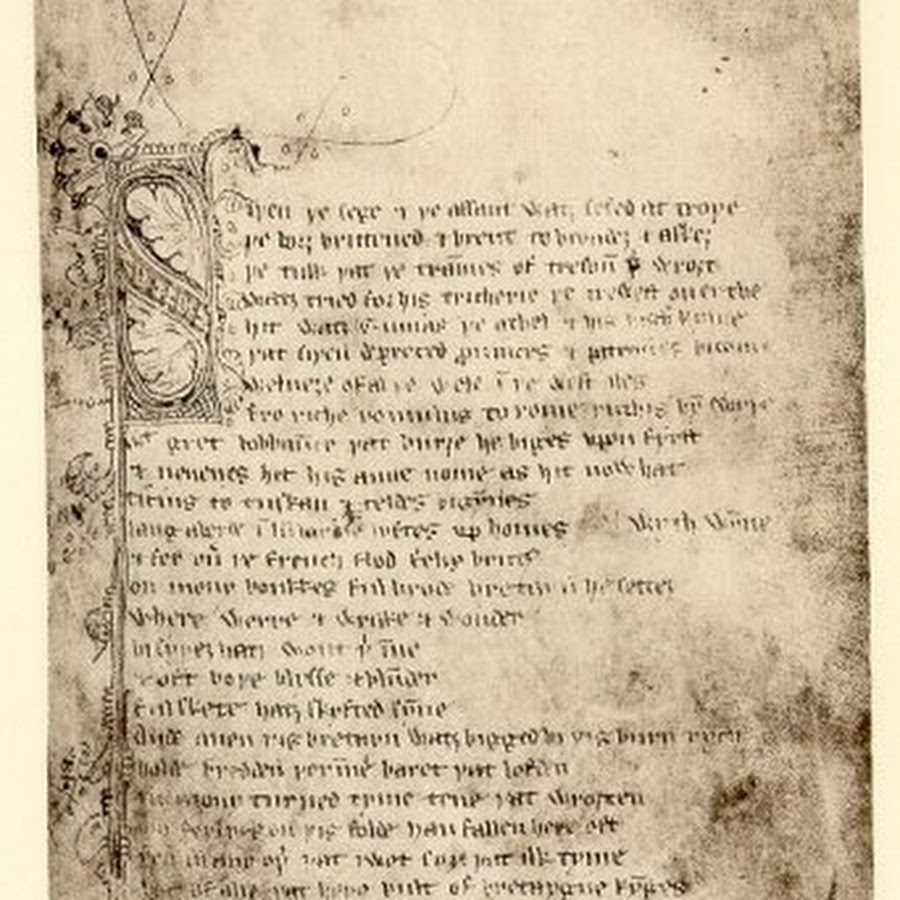 Siþen þe sege & þe assaut watz sesed at troye
þe borȝ brittened & brent to brondeȝ & askez
þe tulk þat þe trām̄es of tresoū þ̾ wroȝt
watz tried for his tricherie þe trewest on erthe
hit watz Ennias þe athel & his highe kynde
þat siþen depreced prouinces & patrounes bicome
welneȝe of al þe wele ī þe west iles
fro riche romulus to rome ricchis hȳ swyþe
wᵗ gret bobbaūce þat burȝe he biges vpon fyrst
& neuenes hit his aune nome as hit now hat
ticius to tuskan & teldes bigȳnes
langaberde ī lumbardie lyftes vp homes wyth wȳne
& fer ou̾ þe french flod felix brutus
on mony bonkkes ful brode bretayn he settez
where werre & wrake & wonder
bi syþez hatz wont þ̾ īne
& oft boþe blysse & blūder
ful skete hatz skyfted sȳne
Ande quen þis bretayn watz bigged bi þis burn rych
bolde bredden þerīne baret þat lofden
in mony turned tyme tene þat wroȝten
mo ferlyes on þis folde han fallen here oft
þen in any oþ̾ þat I wot syn þat ilk tyme
bot of alle þat here bult of bretaygne kȳges